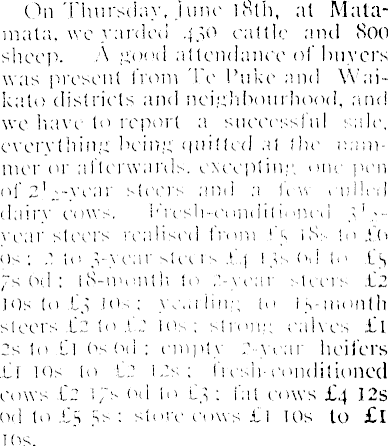 On Thursday, June 18th, at Mata-
mata, we yarded 430 cattle and 800
sheep. A good attendance of buyers
was present from Te Puke and Wai-
kato districts and neighbourhood, and
we have to report a successful sale,
everything being quitted at the ham-
mer or afterwards, excepting one pen
of 2½-year steers and a few culled
dairy cows. Fresh-conditioned 3½-
year steers realised from £5 18s to £6
9s; 2 to 3-year steers £4 13s 6d to £5
7s 6d; 18-month to 2-year steers £2
10s to £3 10s; yearling to 15-month
steers £2 to £2 10s; strong calves £1
2s to £1 6s 6d; empty 2-year heifers
£1 10s to £2 12s; fresh-conditioned
cows £2 17s 6d to £3; fat cows £4 12s
6d to £5 5s; store cows £1 10s to £1
10s.